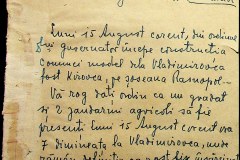 Luni 15 August corent, din ordinul
Dlui guvernator începe constructia
Comunei model dela Vladimirovca
fost Kirovca, pe șoseaua
Vă rog dati ordin ca un gradat
și 2 jandarmi agricoli să fie
prezenti Luni 15 August corent ora
7 dimineata la Vladimirovca, unde